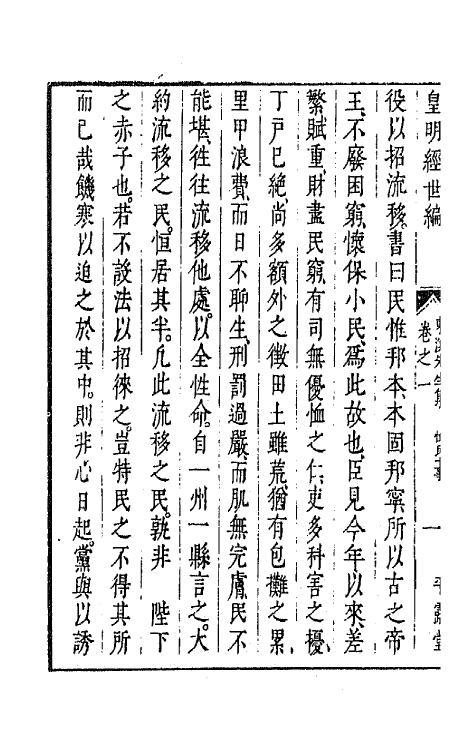 皇明經世編
卷之一
一
平露堂
役以招流移。書曰民惟邦本、本固邦寧、所以古之帝
王、不廢困窮、懷保小民、爲此故也、臣見今年以來、差
繁賦重、財盡民窮、有司無優恤之仁、吏多科害之擾、
丁戸已絶、尚多額外之徴、田土雖荒、猶有包攤之累、
里甲浪費、而日不聊生、刑罰過嚴、而肌無完膚、民不
能堪、徃徃流移他處。以全性命。自一州一縣言之。大
約流移之民。恒居其半。凢此流移之民。孰非　陛下
之赤子也。若不設法以招徠之。豈特民之不得其所
而已哉。饑寒以迫之於其中。則非心日起。黨與以誘